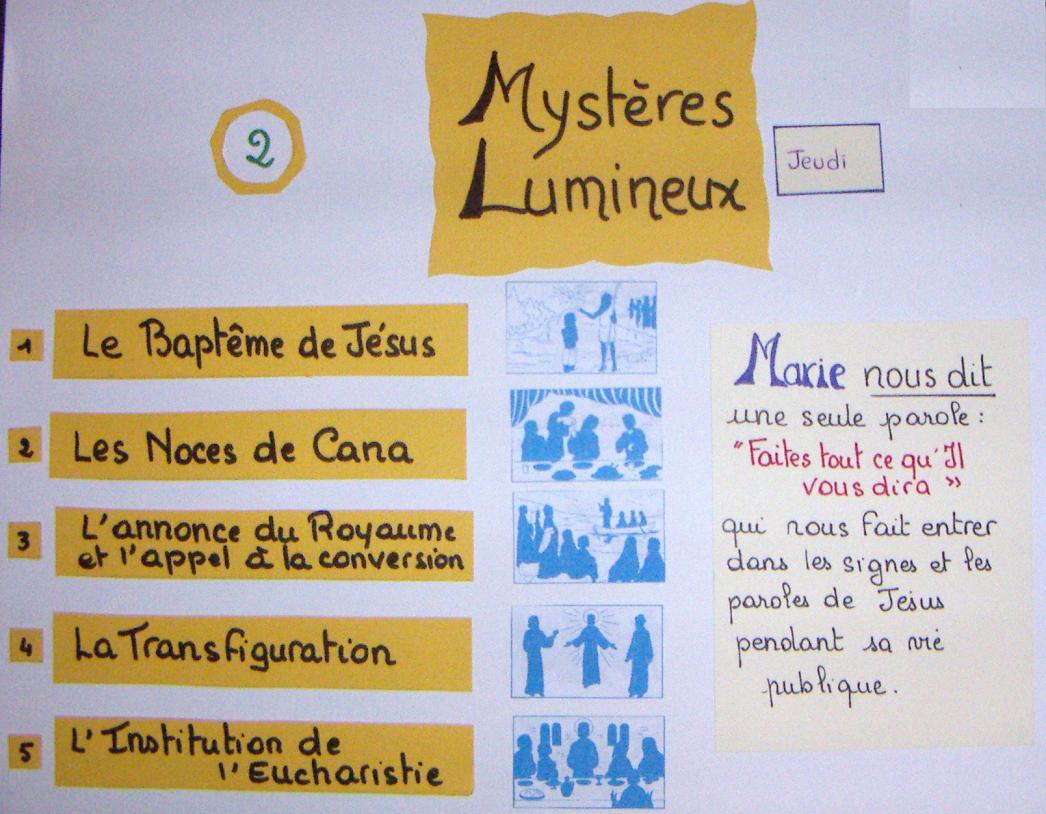 2
Mystères
Lumineux
Jeudi
1
Le Baptême de Jésus
2
Les Noces de Cana
3
L'annonce du Royaume
et l'appel à la conversion
4
La Transfiguration
5
L'Institution de
l'Eucharistie
Marie nous dit
une seule parole :
"Faites tout ce qu'Il
vous dira "
qui nous fait entrer
dans les signes et les
paroles de Jésus
pendant sa vie
publique.